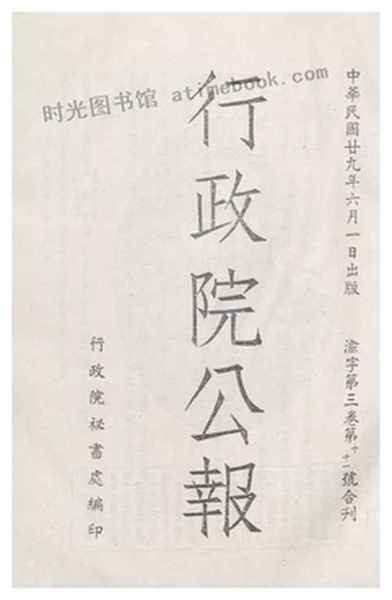 中華民國廿九年六月一日出版
渝字第三卷第十、十一號合刊
行政院公報
行政院祕書處編印
时光图书馆 atimebook.com